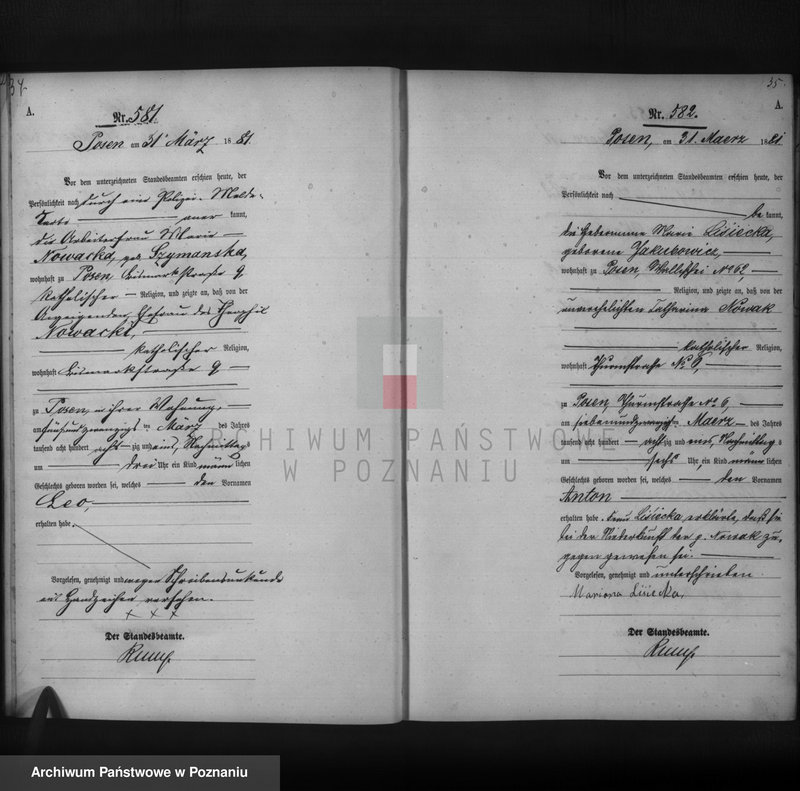 34
A.
Nr. 581.
Posen am 31 März 1881.
Vor dem unterzeichneten Standesbeamten erschien heute, der
Persönlichkeit nach durch eine Polizei-Melde-
Karte aner kannt,
die Arbeiterfrau Marie
Nowacka, geb Szymanska,
wohnhaft zu Posen Bismarkstraße 9
katholischer Religion, und zeigte an, daß von der
Anzeigenden, Ehefrau des
Nowacki,
katholischer Religion,
wohnhaft Bismarkstraße 9
zu Posen, in ihrer Wohnung,
am fünfundzwanzigsten März des Jahres
tausend acht hundert acht zig und eins, Nachmittags
um drei Uhr ein Kind männ lichen
Geschlechts geboren worden sei, welches den Vornamen
Leo,
erhalten habe.
Vorgelesen, genehmigt und wegen Schreibensunkunde
mit Handzeichen versehen.
+ + +
Der Standesbeamte.
35
A.
Nr. 582.
Posen, am 31. Maerz 1881.
Vor dem unterzeichneten Standesbeamten erschien heute, der
Persönlichkeit nach
be kannt,
die Hebeamme Marie Lisiecka,
geborene Jakubowicz,
wohnhaft zu Posen, Wallischei No 62
Religion, und zeigte an, daß von der
unverehelichten Catharina Nowak
katholischer Religion,
wohnhaft Thurmstraße No 6,
zu Posen, Thurmstraße No 6,
am siebenundzwanzigsten Maerz des Jahres
tausend acht hundert acht zig und eins, Nachmittags
um sechs Uhr ein Kind männ lichen
Geschlechts geboren worden sei, welches den Vornamen
Anton
erhalten habe. Frau Lisiecka erklärte, daß sie
bei der Niederkunft der p. Nowak zu-
gegen gewesen sei.
Vorgelesen, genehmigt und unterschrieben
Maria Lisiecka,
Der Standesbeamte.
ARCHIWUM PAŃSTWOWE
W POZNANIU
Archiwum Państwowe w Poznaniu